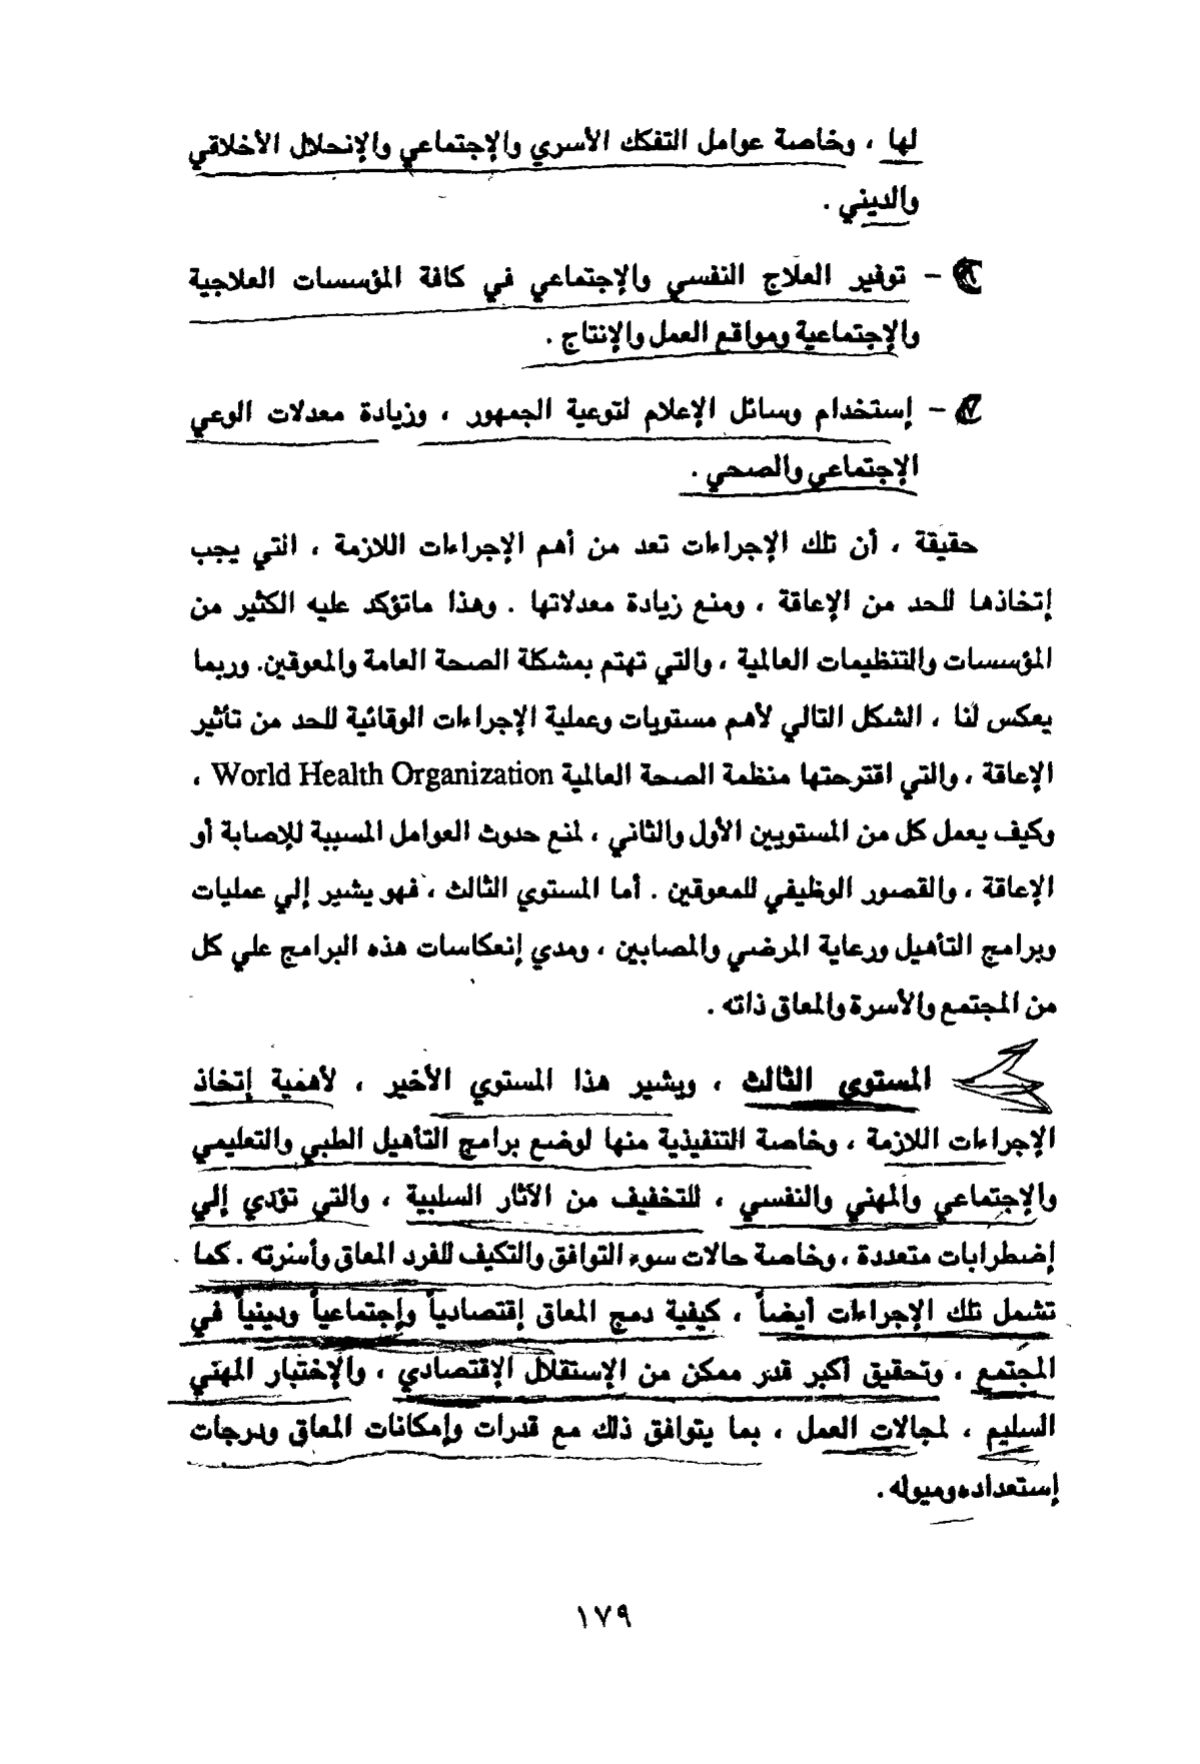 لها ، وخاصة عوامل التفكك الأسري والإجتماعي والإنحلال الأخلاقي
والديني .
- توفير العلاج النفسي والإجتماعي في كافة المؤسسات العلاجية
والإجتماعية ومواقع العمل والإنتاج .
- إستخدام وسائل الإعلام لتوعية الجمهور ، وزيادة معدلات الوعي
الإجتماعي والصحي .
حقيقة ، أن تلك الإجراءات تعد من أهم الإجراءات اللازمة ، التي يجب
إتخاذها للحد من الإعاقة ، ومنع زيادة معدلاتها . وهذا ماتؤكد عليه الكثير من
المؤسسات والتنظيمات العالمية ، والتي تهتم بمشكلة الصحة العامة والمعوقين. وربما
يعكس لنا ، الشكل التالي لأهم مستويات وعملية الإجراءات الوقائية للحد من تأثير
الإعاقة ، والتي اقترحتها منظمة الصحة العالمية World Health Organization ،
وكيف يعمل كل من المستويين الأول والثاني ، لمنع حدوث العوامل المسببة للإصابة أو
الإعاقة ، والقصور الوظيفي للمعوقين . أما المستوي الثالث ، فهو يشير إلي عمليات
وبرامج التأهيل ورعاية المرضي والمصابين ، ومدي إنعكاسات هذه البرامج علي كل
من المجتمع والأسرة والمعاق ذاته .
المستوي الثالث ، ويشير هذا المستوي الأخير ، لأهمية إتخاذ
الإجراءات اللازمة ، وخاصة التنفيذية منها لوضع برامج التأهيل الطبي والتعليمي
والإجتماعي والمهني والنفسي ، للتخفيف من الآثار السلبية ، والتي تؤدي إلي
إضطرابات متعددة ، وخاصة حالات سوء التوافق والتكيف للفرد المعاق وأسرته . كما
تشمل تلك الإجراءات أيضاً ، كيفية دمج المعاق إقتصادياً وإجتماعياً ودينياً في
المجتمع ، وتحقيق أكبر قدر ممكن من الإستقلال الإقتصادي ، والإختبار المهني
السليم ، لمجالات العمل ، بما يتوافق ذلك مع قدرات وإمكانات المعاق ودرجات
إستعداده وميوله .
١٧٩